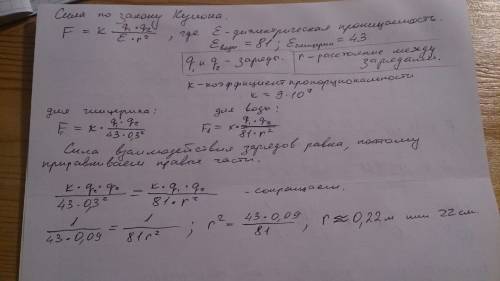 Сила по закону Кулона.
F = k q₁·q₂ / ε·r², где ε - диэлектрическая проницаемость.
ε воды = 81 ; ε глицерин = 43
q₁ и q₂ - заряды. r - расстояние между зарядами.
k - коэффициент пропорциональности
k = 9·10⁹
для глицерина: для воды:
F₁ = k · q₁·q₂ / 43·0,3² F₁ = k· q₁·q₂ / 81·r²
Сила взаимодействия зарядов равна, поэтому
приравниваем правые части.
k·q₁·q₂ / 43·0,3² = k·q₁·q₂ / 81·r² - сокращаем.
1 / 43·0,09 = 1 / 81r² ; r² = 43·0,09 / 81 , r ≈ 0,22 м или 22 см.